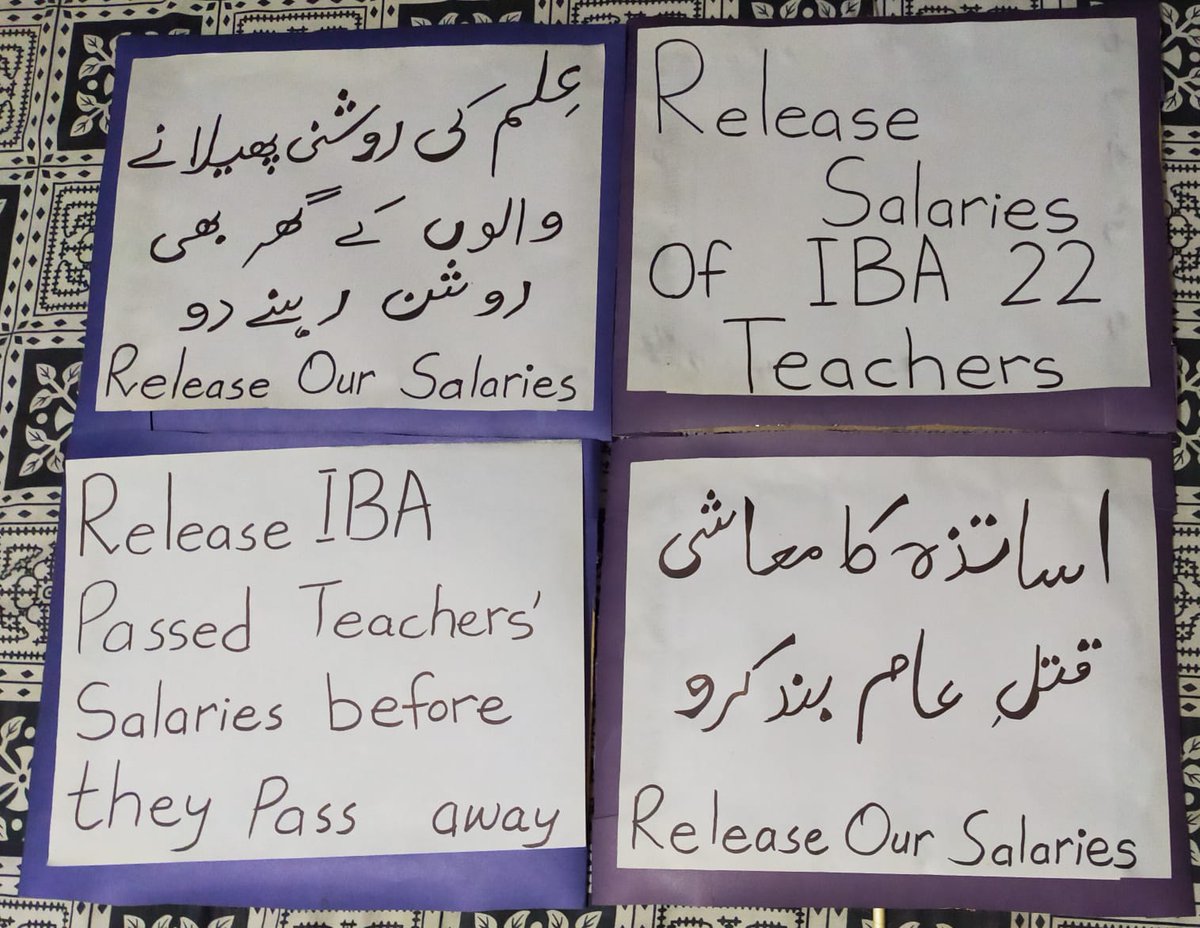 عِلم کی روشنی پھیلانے
والوں کے گھر بھی
روشن رہنے دو
Release Our Salaries
Release
Salaries
Of IBA 22
Teachers
Release IBA
Passed Teachers'
Salaries before
they Pass away
اساتذہ کا معاشی
قتلِ عام بند کرو
Release Our Salaries